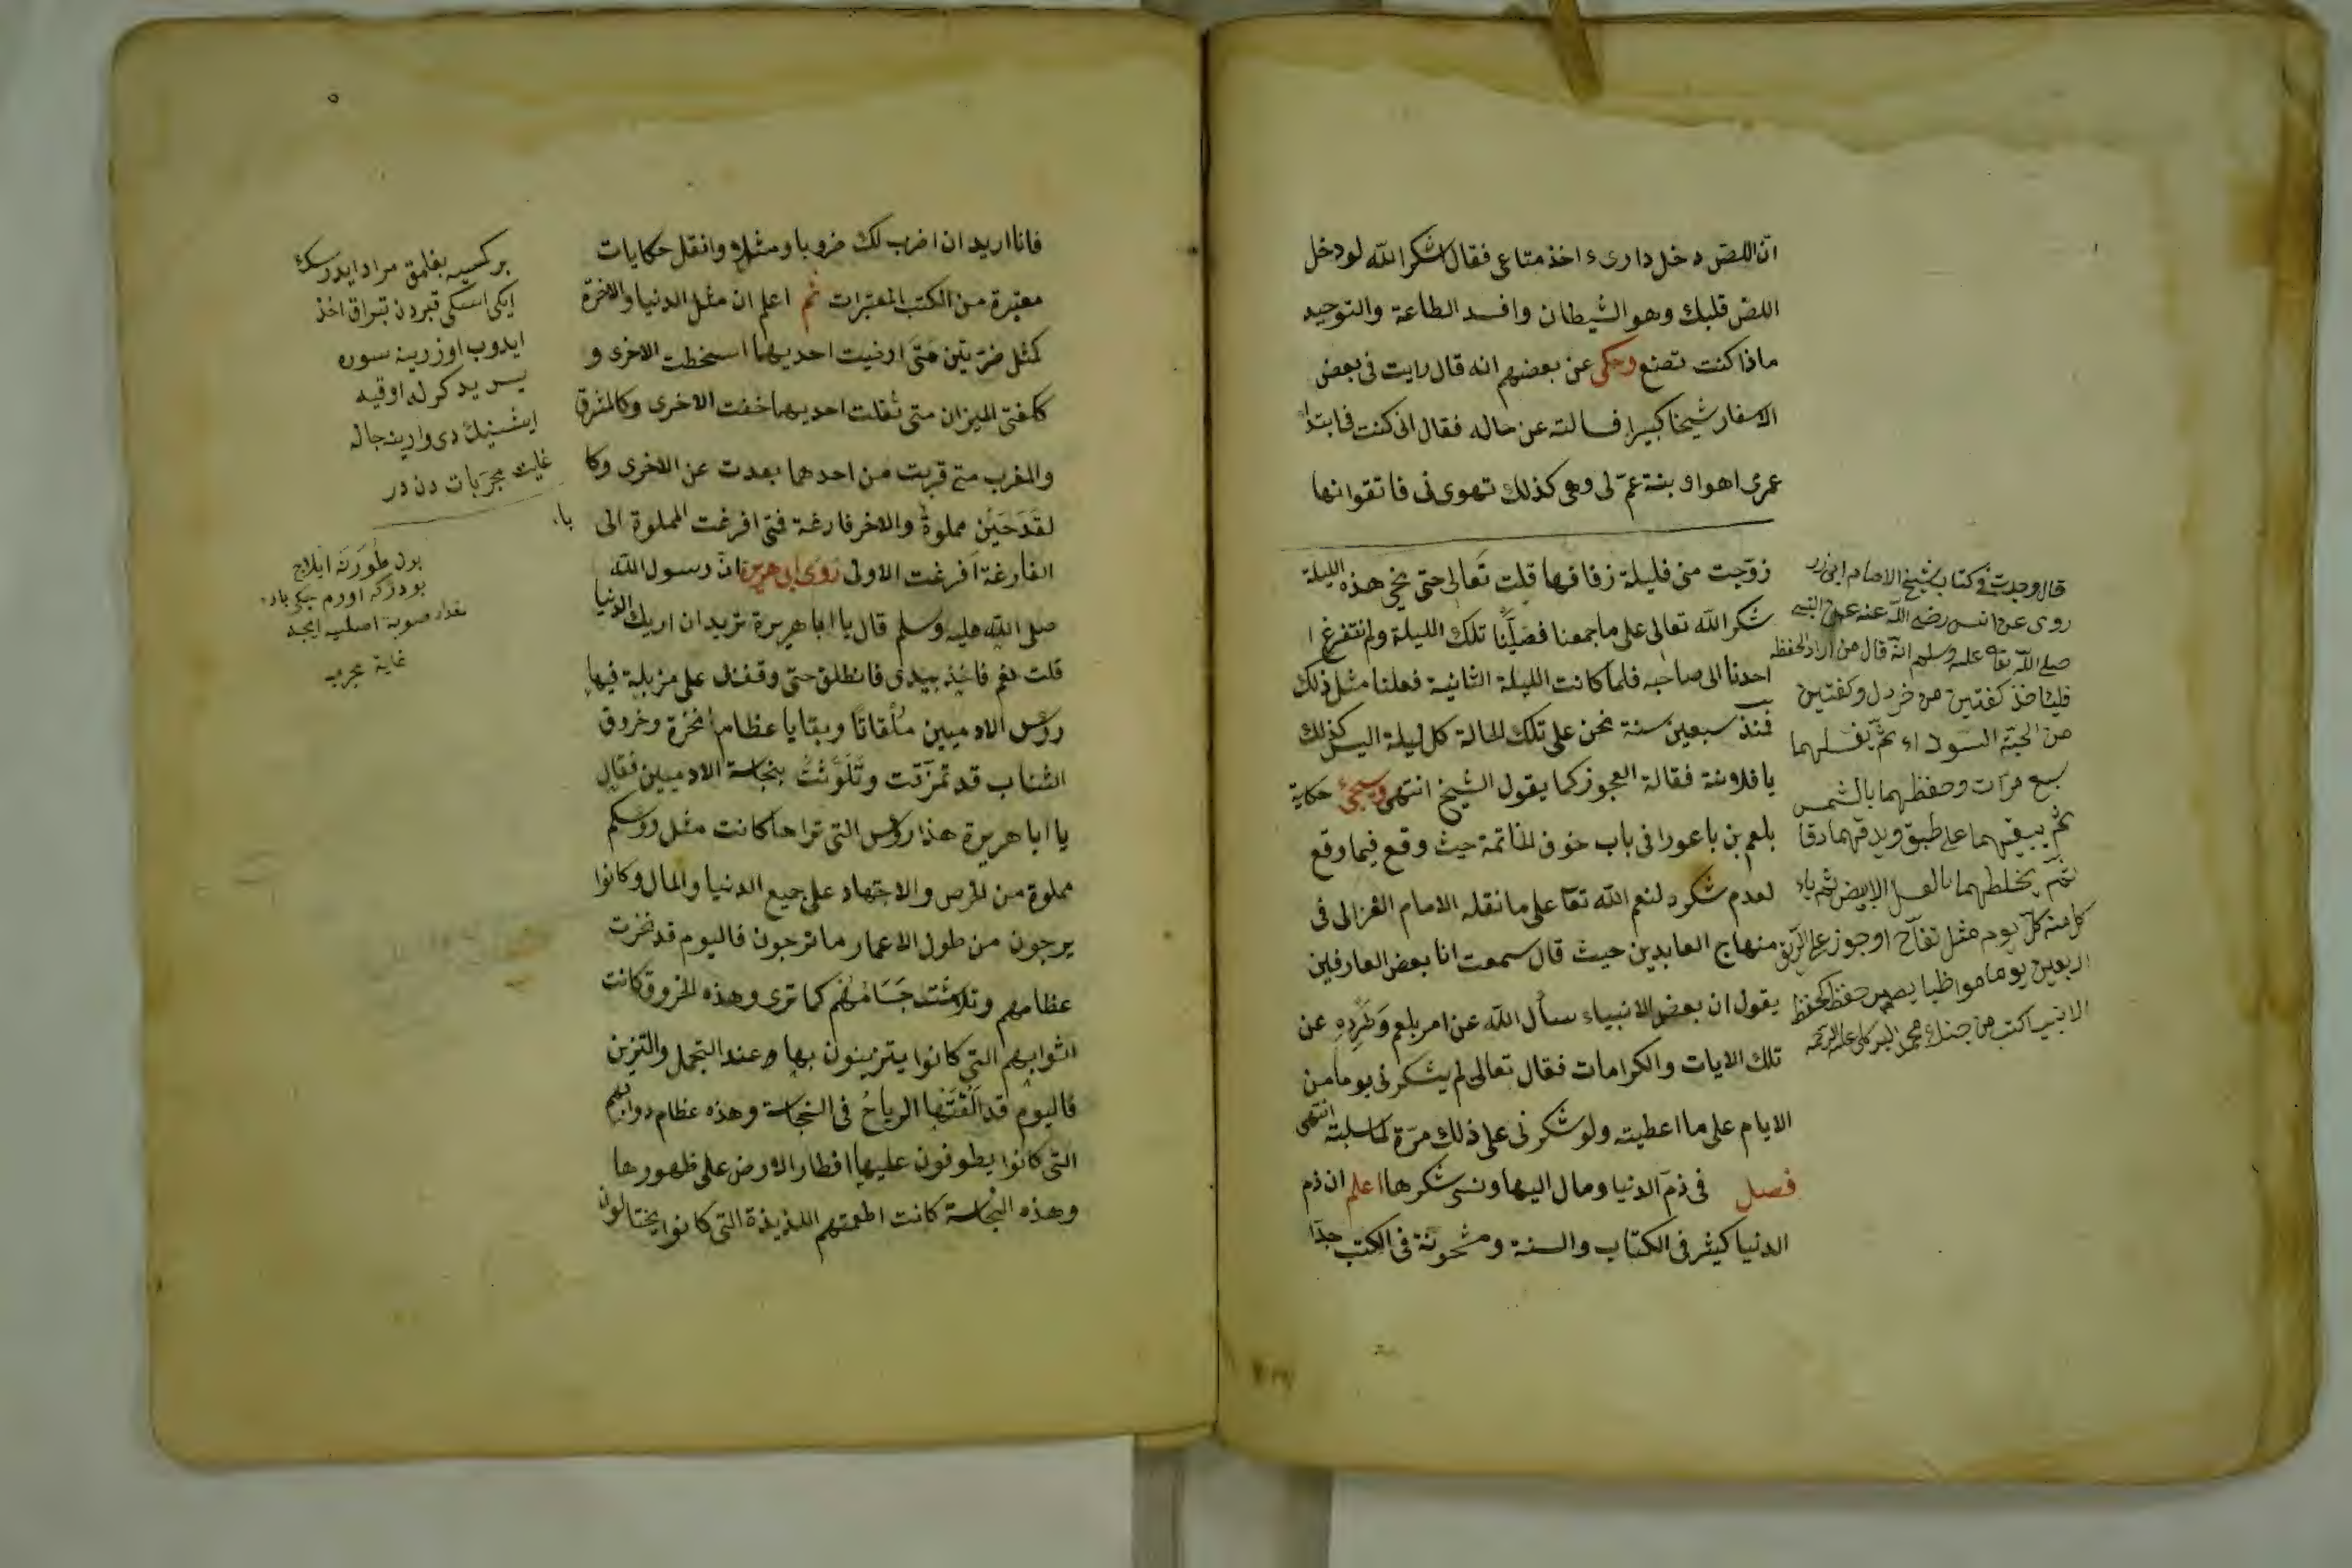 انّ اللص دخل داری واخذ متاعی فقال اشكر الله لودخل
اللصّ قلبك وهو الشيطان وافسد الطاعة والتوحيد
ماذا كنت تصنع وحكی عن بعضهم انه قال رايت فی بعض
الاسفار شيخا كبيرا فسالته عن حاله فقال انی كنت فی ابتداء
عمری اهوا بنة عمّ لی وهی كذلك تهوی نی فاتقوا نها
زوّجت منی فليلة زفافها قلت تعالی حتی نحی هذه الليلة
شكر الله تعالی علی ما جمعنا فصلّينا تلك الليلة ولم نتفرغ
احدنا الی صاحبه فلما كانت الليلة الثانية فعلنا مثل ذلك
فمنذ سبعين سنة نحن علی تلك الحالة كل ليلة اليس كذلك
يا فلانة فقالة العجوز كما يقول الشيخ انتهی وسيجیٔ حكاية
بلعم بن باعورا فی باب خوف الخاتمة حيث وقع فيما وقع
لعدم شكره لنعم الله تعا علی ما نقله الامام الغزالی فی
منهاج العابدين حيث قال سمعت انا بعض العارفين
يقول ان بعض الانبياء سأل الله عن امر بلعم وطَرْدِهِ عن
تلك الايات والكرامات فقال تعالی لم يشكرنی يوما من
الايام علی ما اعطيته ولو شكرنی علی ذلك مرّة لما سلبته انتهی
فصل فی ذمّ الدنيا ومال اليها ونسی شكرها اعلم ان ذم
الدنيا كيثر فی الكتاب والسنة ومشحونة فی الكتب جدّا
قال وجدت فی كتاب شيخ الامام ابی ذر
روی عن انس رضی الله عنه عن النبی
صلی الله تعا عليه وسلم انّه قال من اراد الحفظ
فلياخذ كفتين من خردل وكفتين
من الحبّة السوداء ثمّ يغسلهما
سبع مرّات وحفظهما بالشمس
ثمّ يبقيهما علی طبق ويدقهما دقا
ثمّ يخلطهما بالعسل الابيض ثم ياء
كل منه كلّ يوم مثل تفّاح او جوز علی الرّيق
اربعين يوما مواظبا يصير حفظه كحفظ
الانبيا كتب من جنك محمد البركلی عليه الرحمه
فانا اريد ان اضرب لك ضروبا ومثلا وانقل حكايات
معتبرة من الكتب المعتبرات ثم اعلم ان مثل الدنيا والاخرة
كمثل ضرّتين متی ارضيت احديهما اسخطت الاخری و
ككفتی الميزان متی ثقلت احديهما خفت الاخری وكالمشرق
والمغرب متی قربت من احدهما بعدت عن الاخری وكا
لقَدَحَيْن مملوة والاخر فارغة فمتی افرغت المملوة الی
الفارغة افرغت الاولی روی ابی هريرة انّ رسول الله
صلی الله عليه وسلم قال يا ابا هريرة تريد ان اريك الدنيا
قلت نعم فاخذ بيدی فانطلق حتی وقفنی علی مزبلة فيها
روس الادميين ملقاتا وبقايا عظام نخزة وخروق
الشاب قد تمزّقت وتلوّثت بنجاسة الادميين فقال
يا ابا هريرة هذا روس التی تراها كانت مثل روسكم
مملوة من الحرص والاجتهاد علی جيع الدنيا والمال وكانوا
يرجون من طول الاعمار ما ترجون فاليوم قد نخرت
عظامهم وتلاشت جسامهم كما تری وهذه الخروق كانت
اثوابهم التی كانوا يتزينون بها وعند التجمل والتزين
فاليوم قد القَتْها الرياح فی النجاسة وهذه عظام دوابهم
التی كانوا يطوفون عليها اقطار الارض علی ظهورها
وهذه النجاسة كانت اطعمتهم اللذيذة التی كانوا يحتالون
بر كمسيه بغلمق مراد ايدرسك
ايكی اسكی قبردن تبراق اخذ
ايدوب اوزرينه سوره
يس يد كرله اوقيه
ايشنيك دی وارينه چاله
غايت مجرّبات دن در
بول طورنه ايلاج
بودركه
مقدار صوينه اصليه ايچه
غاية مجرب